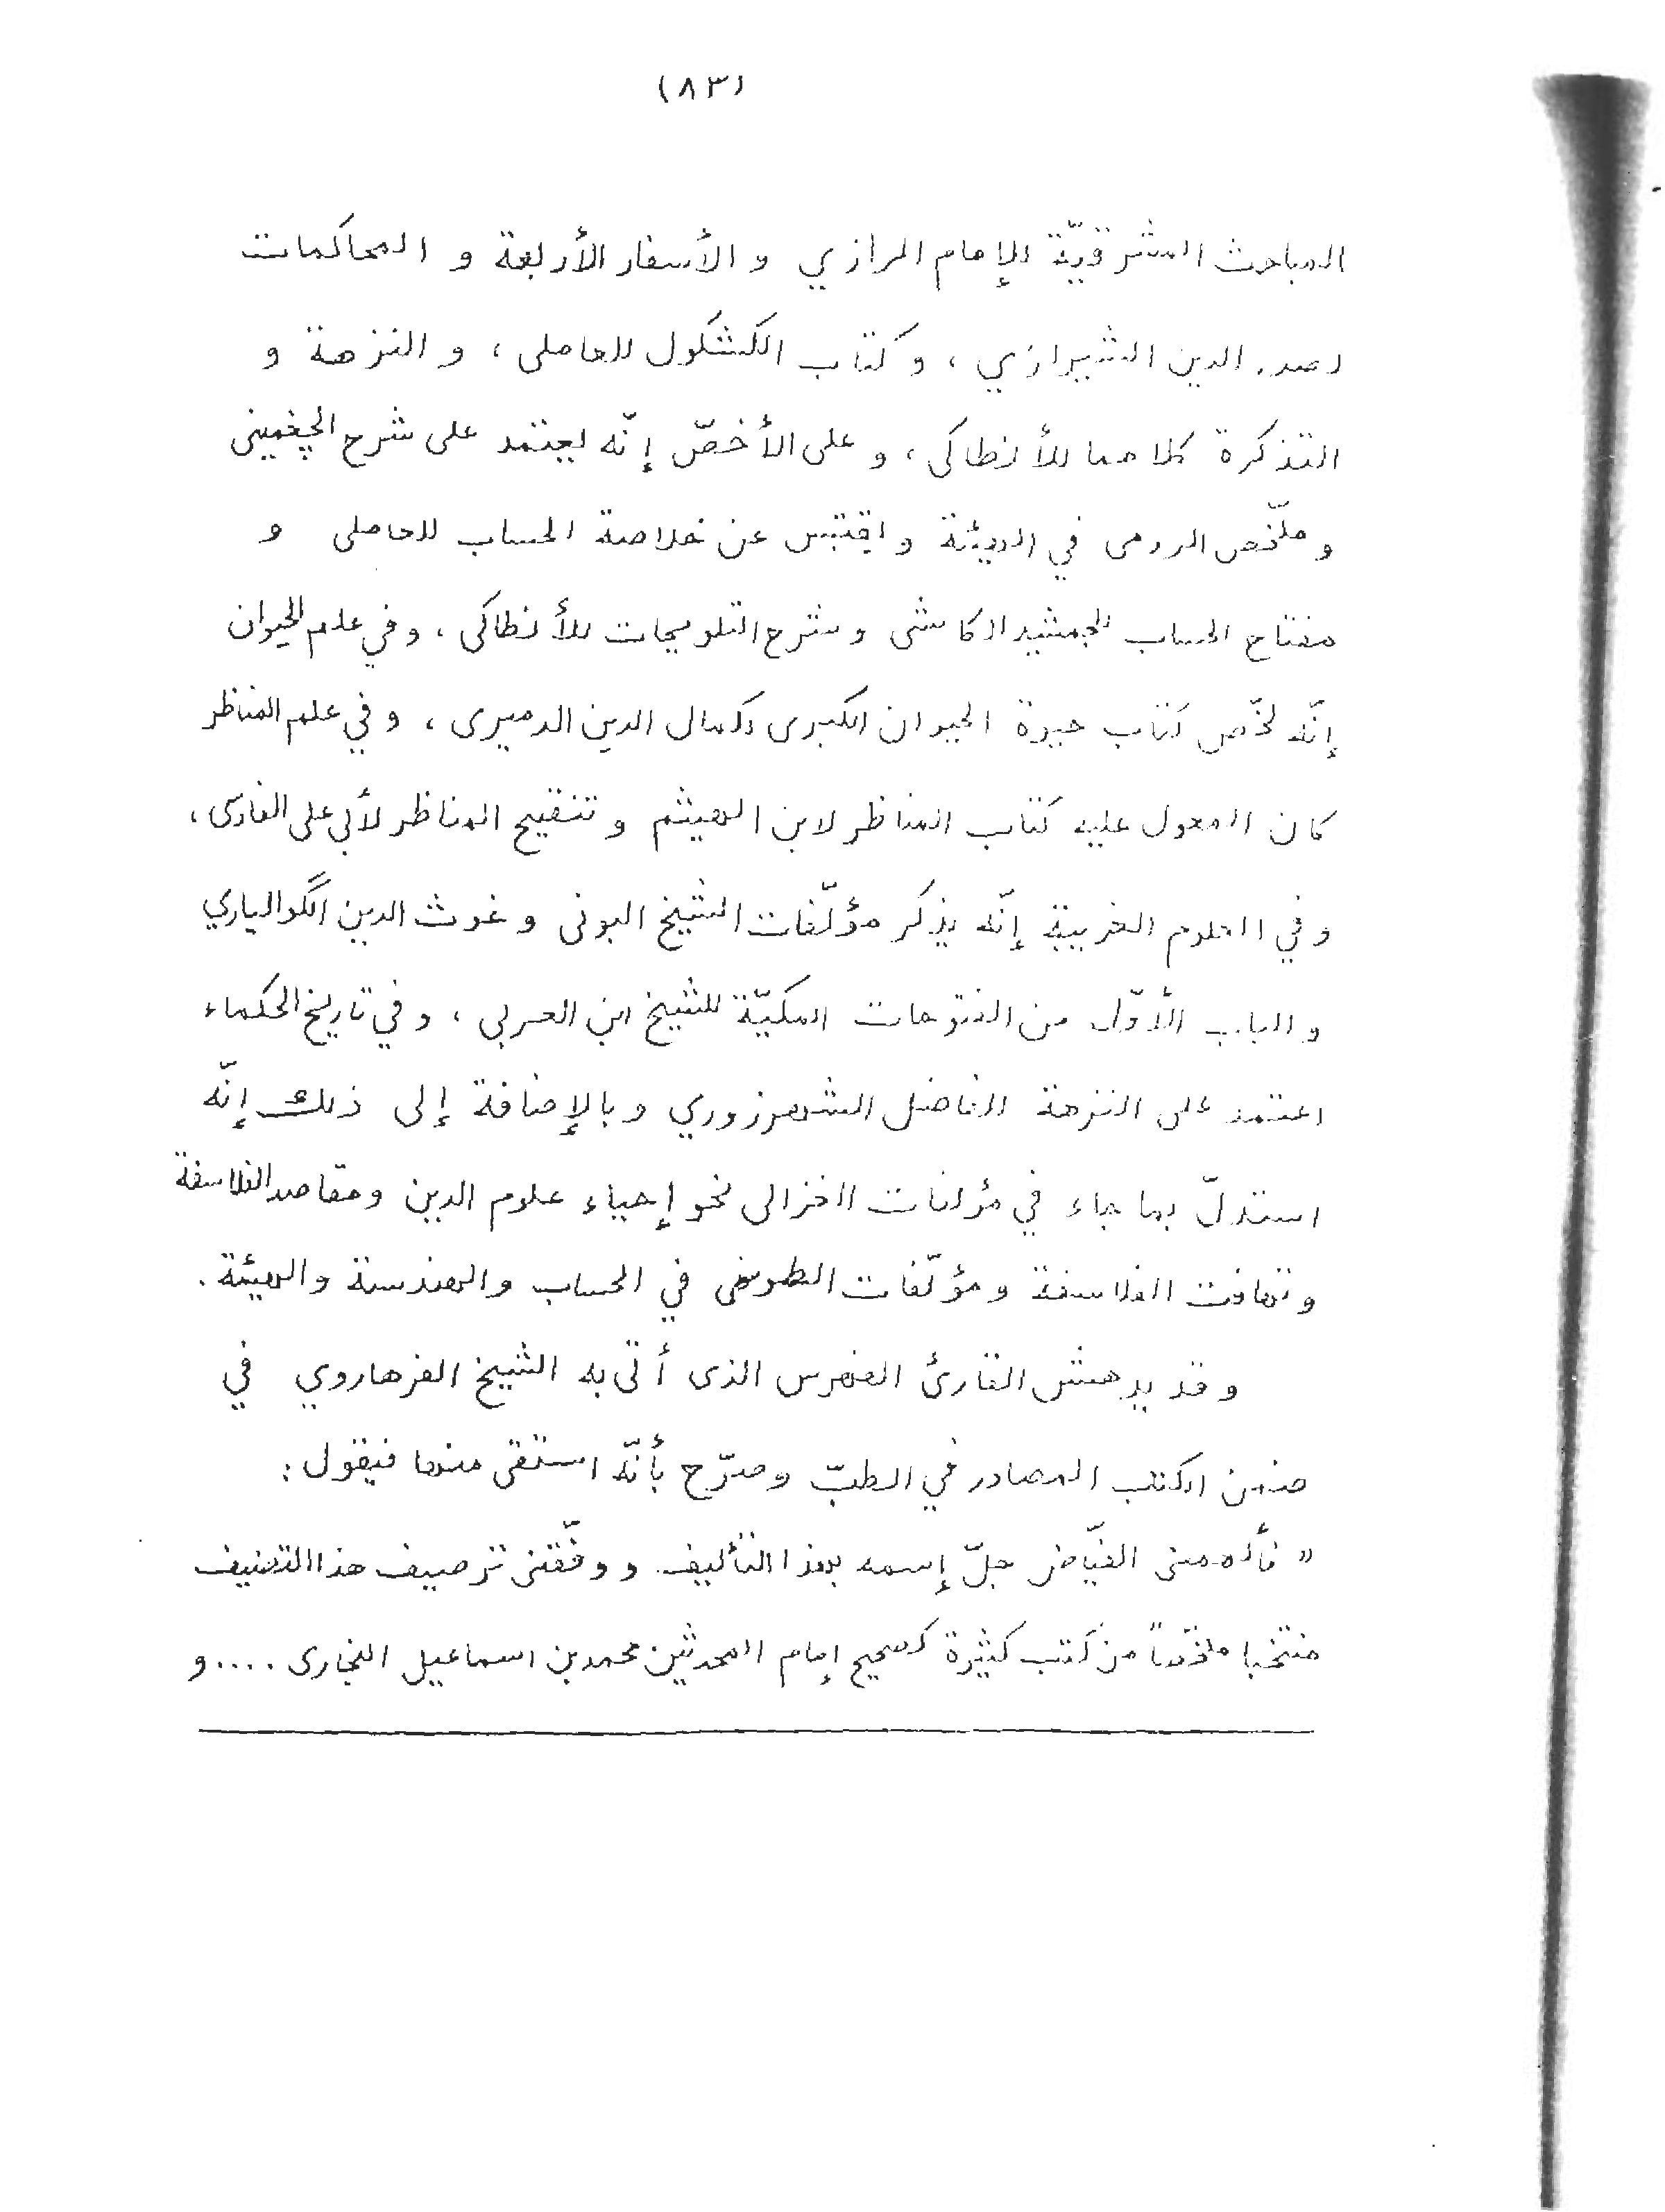 (٨٣)
المباحث المشرقيّة للإمام الرازي و الأسفار الأربعة و المحاكمات
لصدر الدين الشيرازي ، و كتاب الكشكول للعاملى ، و النزهة و
التذكرة كلاهما للأنطاكى ، و على الأخصّ إنّه يعتمد على شرح الچغمينى
و ملّخص الرومى في الهيئة و اقتبس عن خلاصة الحساب للعاملى و
مفتاح الحساب لجمشيد الكاشى و شرح التلويحات للأنطاكى ، وفي علم الحيوان
إنّه لخّص كتاب حيوة الحيوان الكبرى لكمال الدين الدميرى ، وفي علم المناظر
كان المعول عليه كتاب المناظر لابن الهيثم و تنقيح المناظر لأبى على الفارسى ،
وفي العلوم الغريبة إنّه يذكر مؤلّفات الشيخ البونى و غوث الدين الگوالياري
و الباب الأوّل من الفتوحات المكيّة للشيخ ابن العربي ، وفي تاريخ الحكماء
اعتمد على النزهة الفاضل الشهرزوري و بالإضافة إلى ذلك إنّه
استدلّ بما جاء في مؤلفات الغزالى نحو إحياء علوم الدين و مقاصد الفلاسفة
و تهافت الفلاسفة و مؤلّفات الطوسى في الحساب والهندسة والهيئة .
و قد يدهش القارئ الفهرس الذى أتى به الشيخ الفرهاروي في
ضمن الكتب المصادر في الطبّ و صرّح بأنّه استقى منها فيقول :
" فألهمنى الفيّاض جلّ إسمه بهذا التأليف و وفّقنى ترصيف هذا التصنيف
منتخبا ملخّصاً من كتب كثيرة كصحيح إمام المحدثين محمد بن اسماعيل البخارى .... و